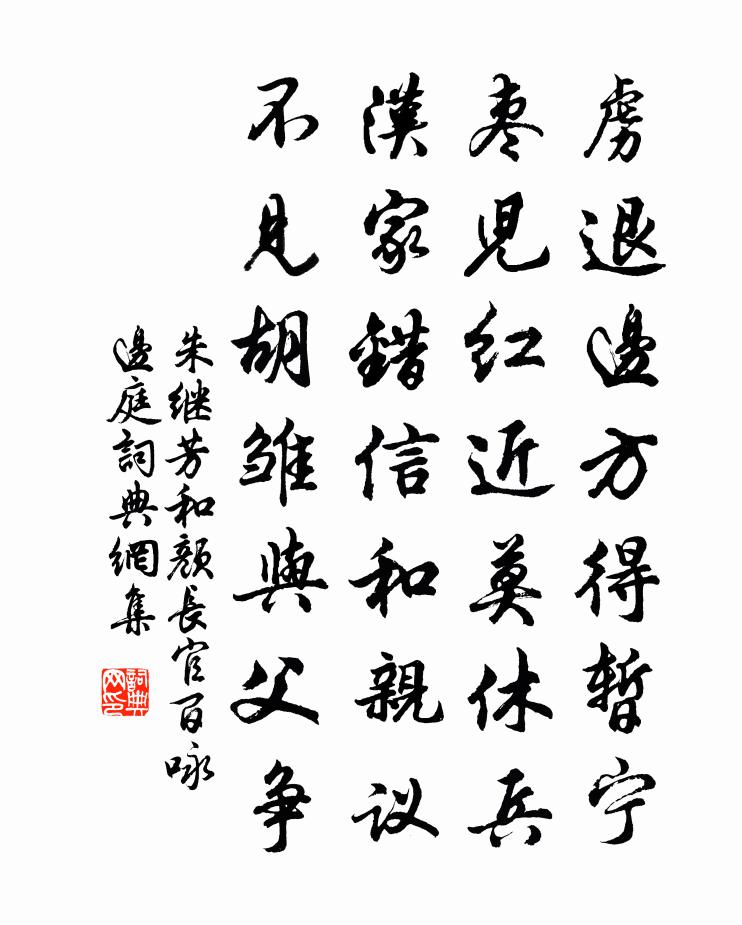 虜退邊方得暫宁
枣児红近莫休兵
漢家錯信和親议
不見胡雏與父争
朱继芳和颜长官百咏
邊庭詞典網集
詞典网印